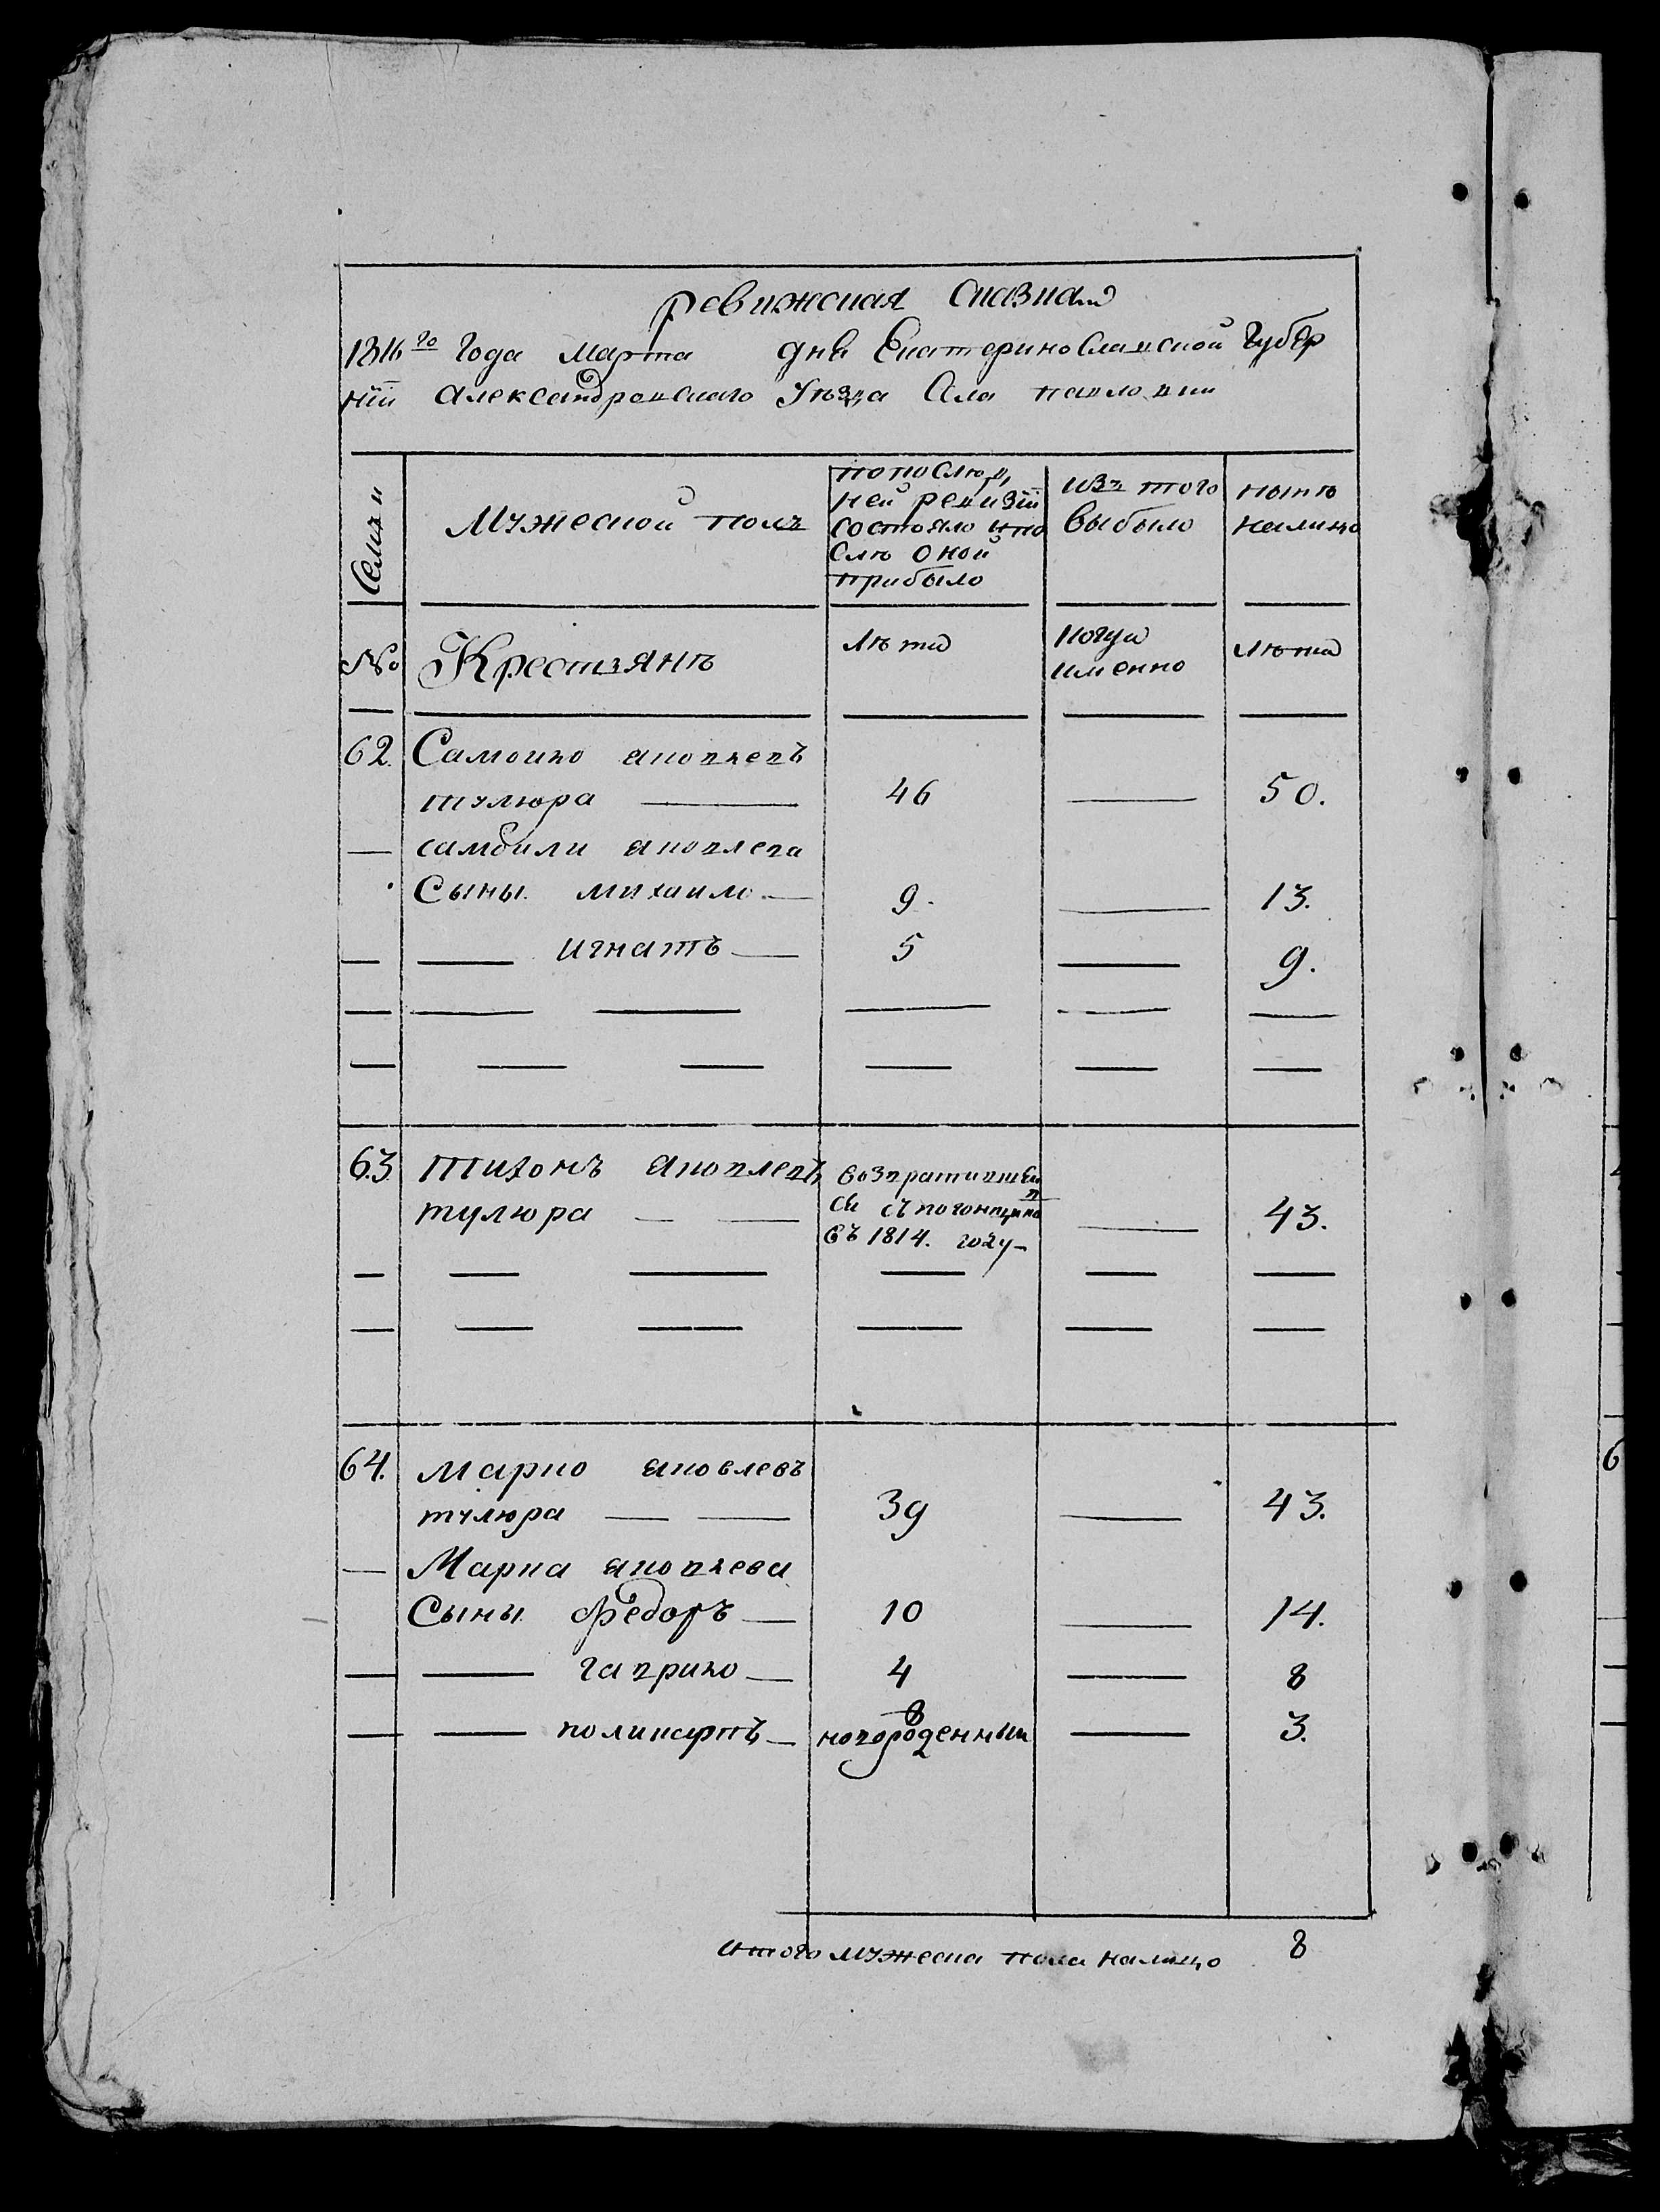 ревижская сказка
1816го Года Марта дня Екатеринославской Губер
нїи Александровскаго Уѣзда Села павловки
Семьи
Мужеской полъ
попослѣд,
ней ревизїи
состояло ипо
слѣ Оной
прибыло
изъ того
выбыло
нынѣ
налицо
№
Крестьянѣ
лѣта
когда
именно
лѣта
62. Самойло яковлевъ
тулюра 46 50.
самойли яковлева
Сыны михайло 9. 13.
игнатъ 5 9.
63. тихонъ яковлевъ
тулюра 43.
возвратившей
ся съ погонщиков
въ 1814. году
64. марко яковлевъ
тулюра 39 43.
Марка яковлева
Сыны Федоръ 10 14.
гаврило 4 8
поликарпъ новороденный 3.
итого мужеска пола налицо 8
6